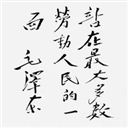 站在最大多数
劳动人民的一
面 毛泽东